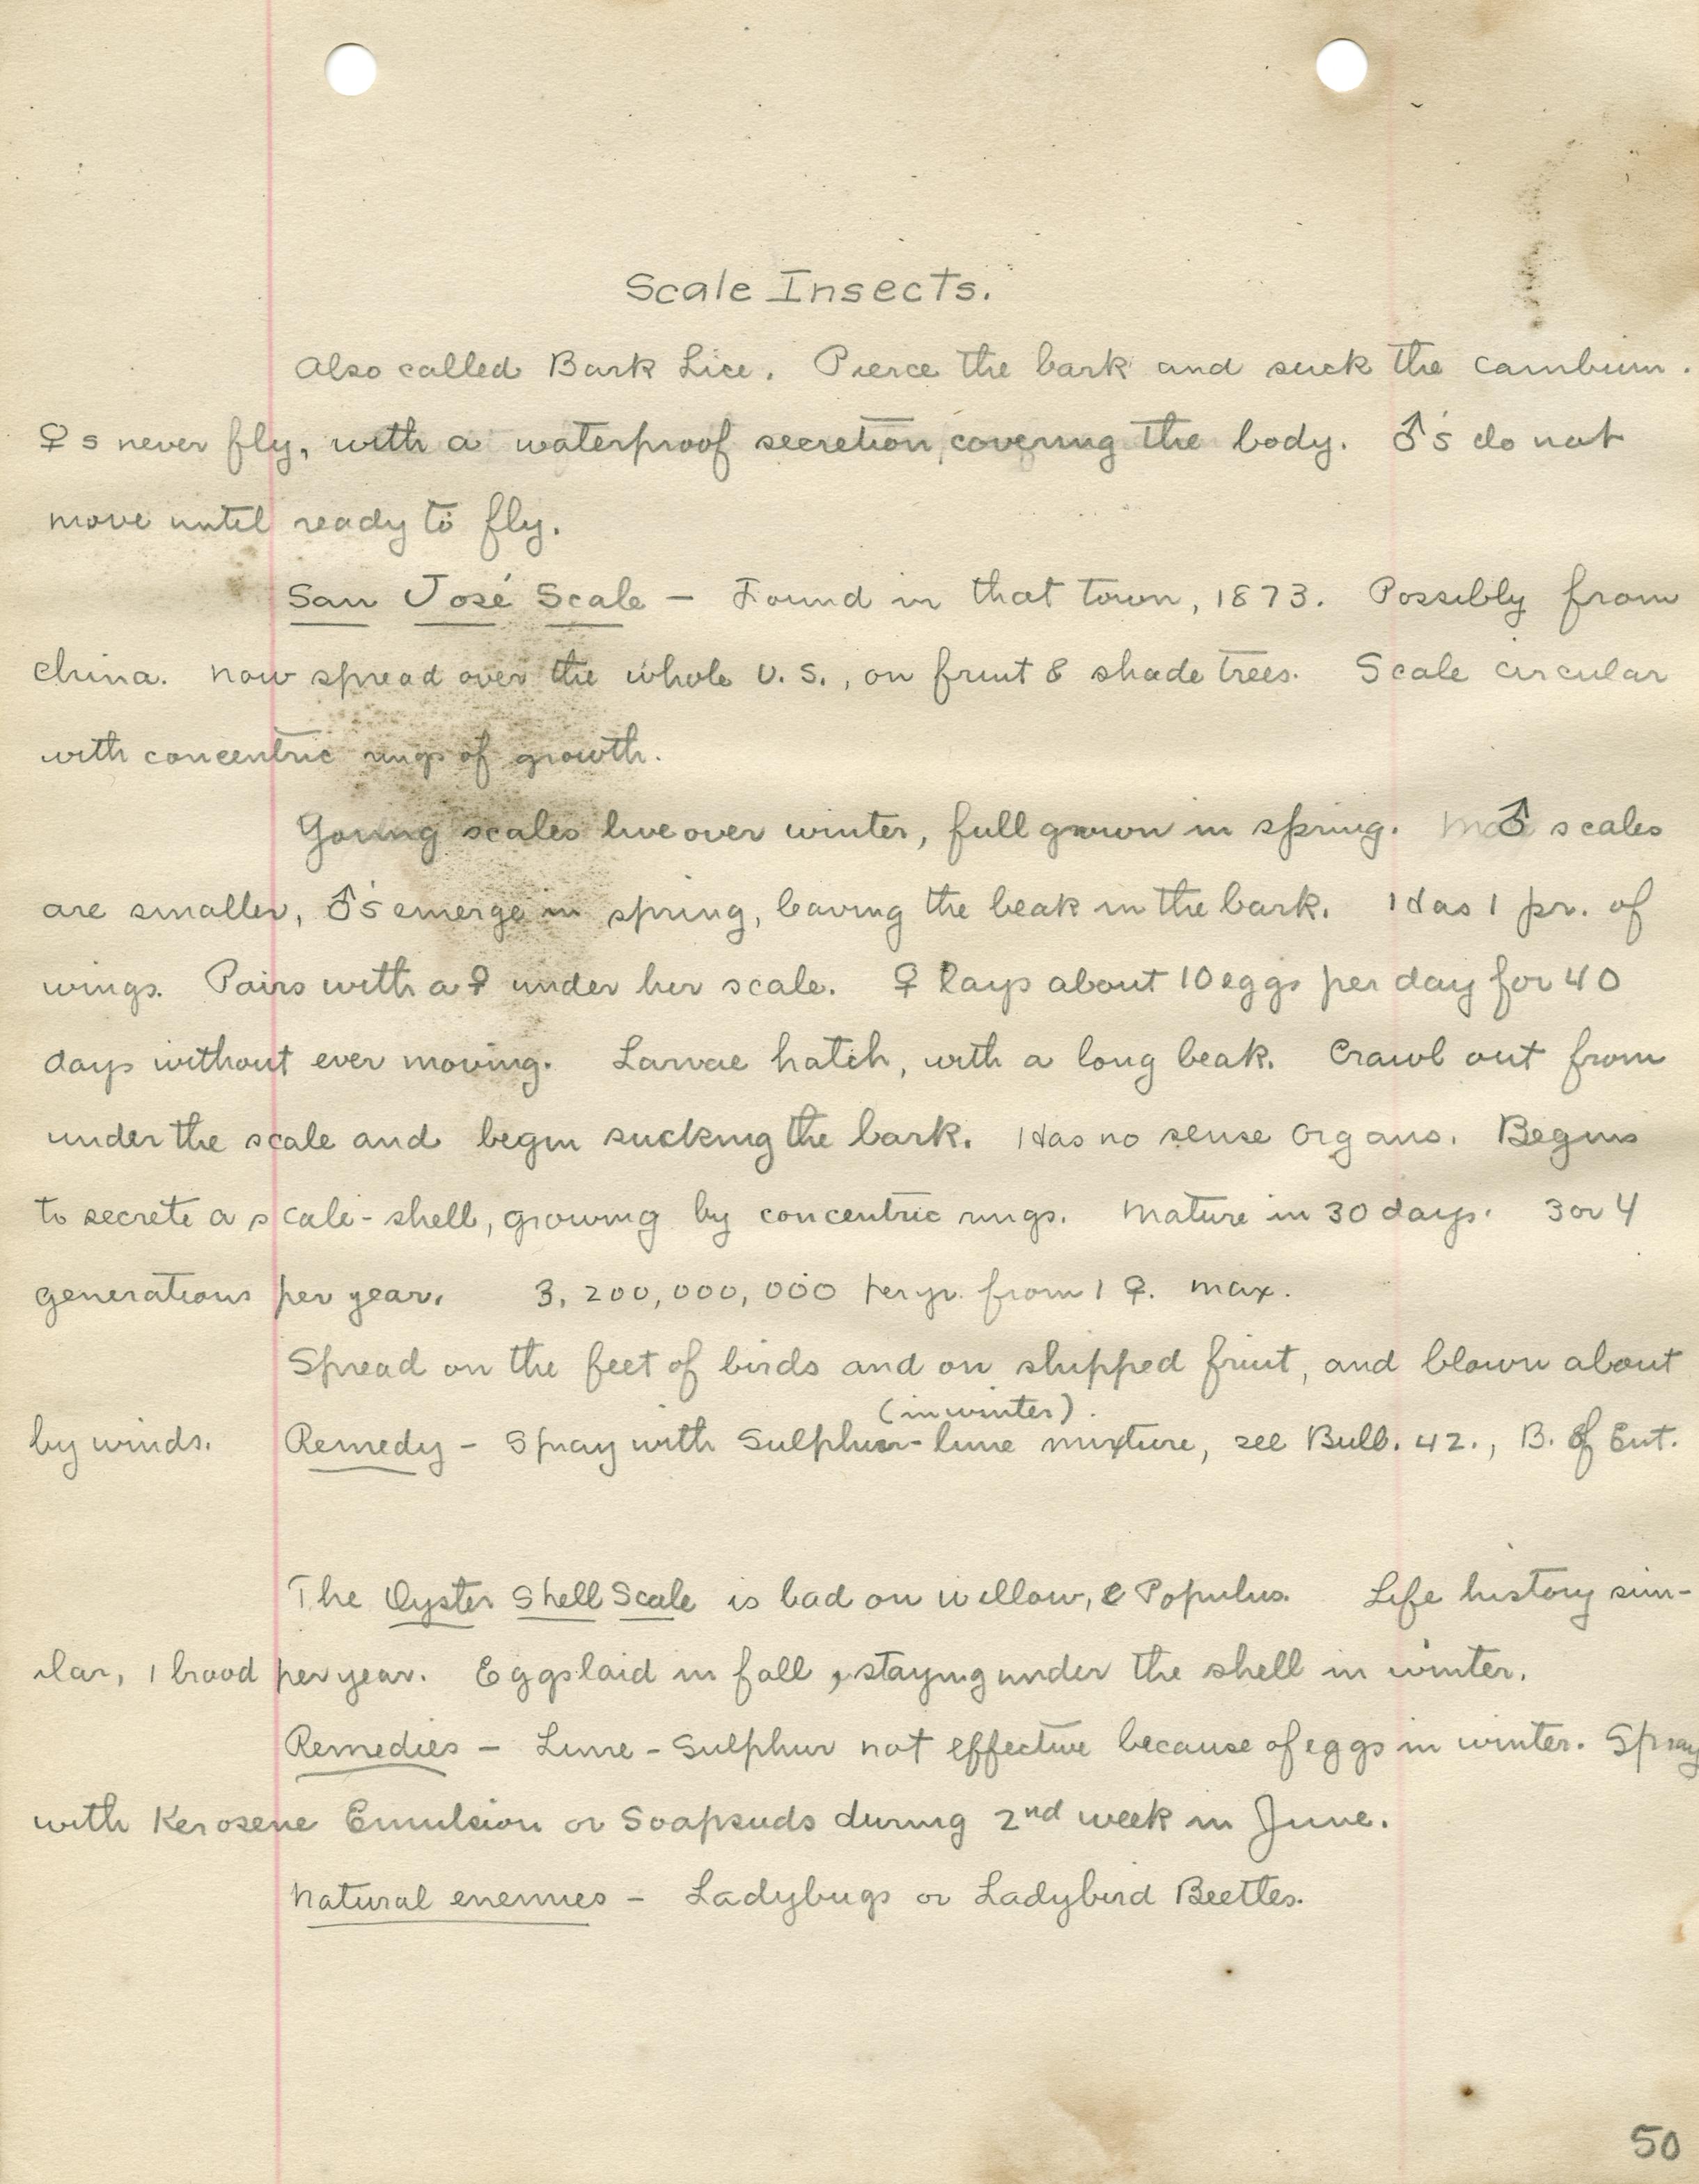 Scale Insects.
Also called Bark Lice. Pierce the bark and suck the cambium.
♀s never fly, with a waterproof secretion, covering the body. ♂'s do not
move until ready to fly.
San José Scale – Found in that town, 1873. Possibly from
China. Now spread over the whole U.S., on fruit & shade trees. Scale circular
with concentric rings of growth.
Young scales live over winter, full grown in spring. ♂ scales
are smaller, ♂'s emerge in spring, leaving the beak in the bark. Has 1 pr. of
wings. Pairs with a ♀ under her scale. ♀ lays about 10 eggs per day for 40
days without ever moving. Larvae hatch, with a long beak. Crawl out from
under the scale and begin sucking the bark. Has no sense organs. Begins
to secrete a scale-shell, growing by concentric rings. Mature in 30 days. 3 or 4
generations per year. 3,200,000,000 per yr. from 1 ♀. max.
Spread on the feet of birds and on shipped fruit, and blown about
(in winter).
by winds. Remedy – Spray with Sulphur-lime mixture, see Bull. 42., B. of Ent.
The Oyster Shell Scale is bad on willow, & Populus. Life history sim-
ilar, 1 brood per year. Eggs laid in fall, staying under the shell in winter.
Remedies – Lime-Sulphur not effective because of eggs in winter. Spray
with Kerosene Emulsion or Soapsuds during 2nd week in June.
Natural enemies – Ladybugs or Ladybird Beetles.
50